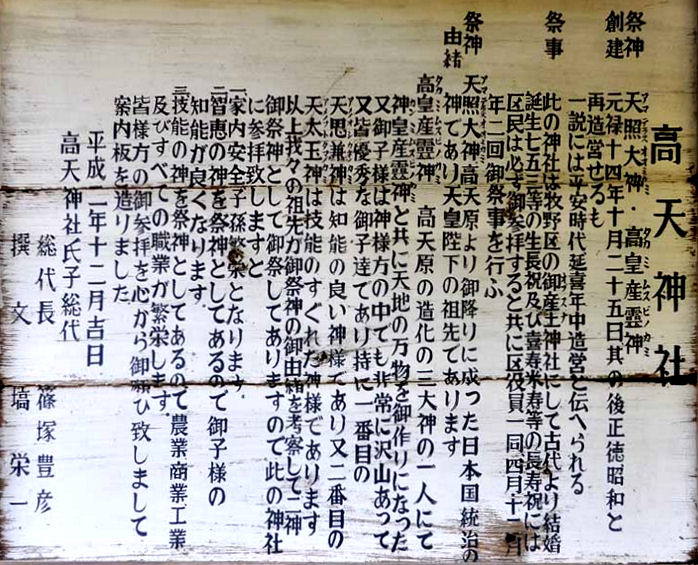 高天神社
祭神 天照大神・高皇産霊神
アマテラスオオミカミ タカミムスビノカミ
創建 元禄十四年十月二十五日其の後正徳昭和と
再造営せるも
一説には平安時代延喜年中造営と伝へられる
祭事 此の神社は牧野区の御産土神社にして古代より結婚
ウブスナ
誕生七五三等の生長祝及び喜寿米寿等の長寿祝には
区民は必ず御参拝すると共に区役員一同、四月・十二月
年二回御祭事を行ふ
由緒
祭神 天照大神高天原より御降りに成った日本国統治の
アマテラスオオミカミ
神であり天皇陛下の祖先であります
高皇産霊神 高天原の造化の三大神の一人にて
タカミムスビノカミ
神皇産霊神と共に天地の万物を御作りになった
カンミムスビノカミ
又御子様は神様方の中でも非常に沢山あって
又皆優秀な御子達であり持に一番目の
天思兼神は知能の良い神様であり又二番目の
天太玉神は技能のすぐれた神様であります
以上我々の祖先が御祭神の御由緒を考察して二神
御祭神として御祭してありますので此の神社
に参拝致しますと
一家内安全子孫繁栄となります
二智恵の神を祭神としてあるので御子様の
知能が良くなります
三技能の神を祭神としてあるので農業商業工業
及びすべての職業が繁栄します
皆様方の御参拝を心から御願ひ致しまして
案内板を造りました
平成二年十二月吉日
高天神社氏子総代
総代長 篠塚豊彦
撰文 塙栄一